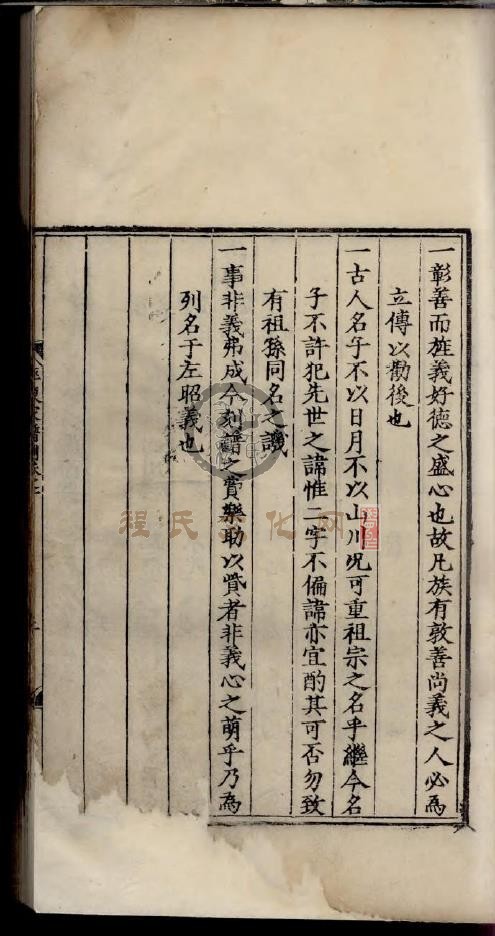 一彰善而旌義好德之盛心也故凡族有敦善尚義之人必為
立傳以勸後也
一古人名子不以日月不以山川况可重祖宗之名乎繼今名
子不許犯先世之諱惟二字不偏諱亦宜酌其可否勿致
有祖孫同名之譏
一事非義弗成今刻譜之費樂助以貲者非義心之萌乎乃為
列名于左昭義也
程氏文化网